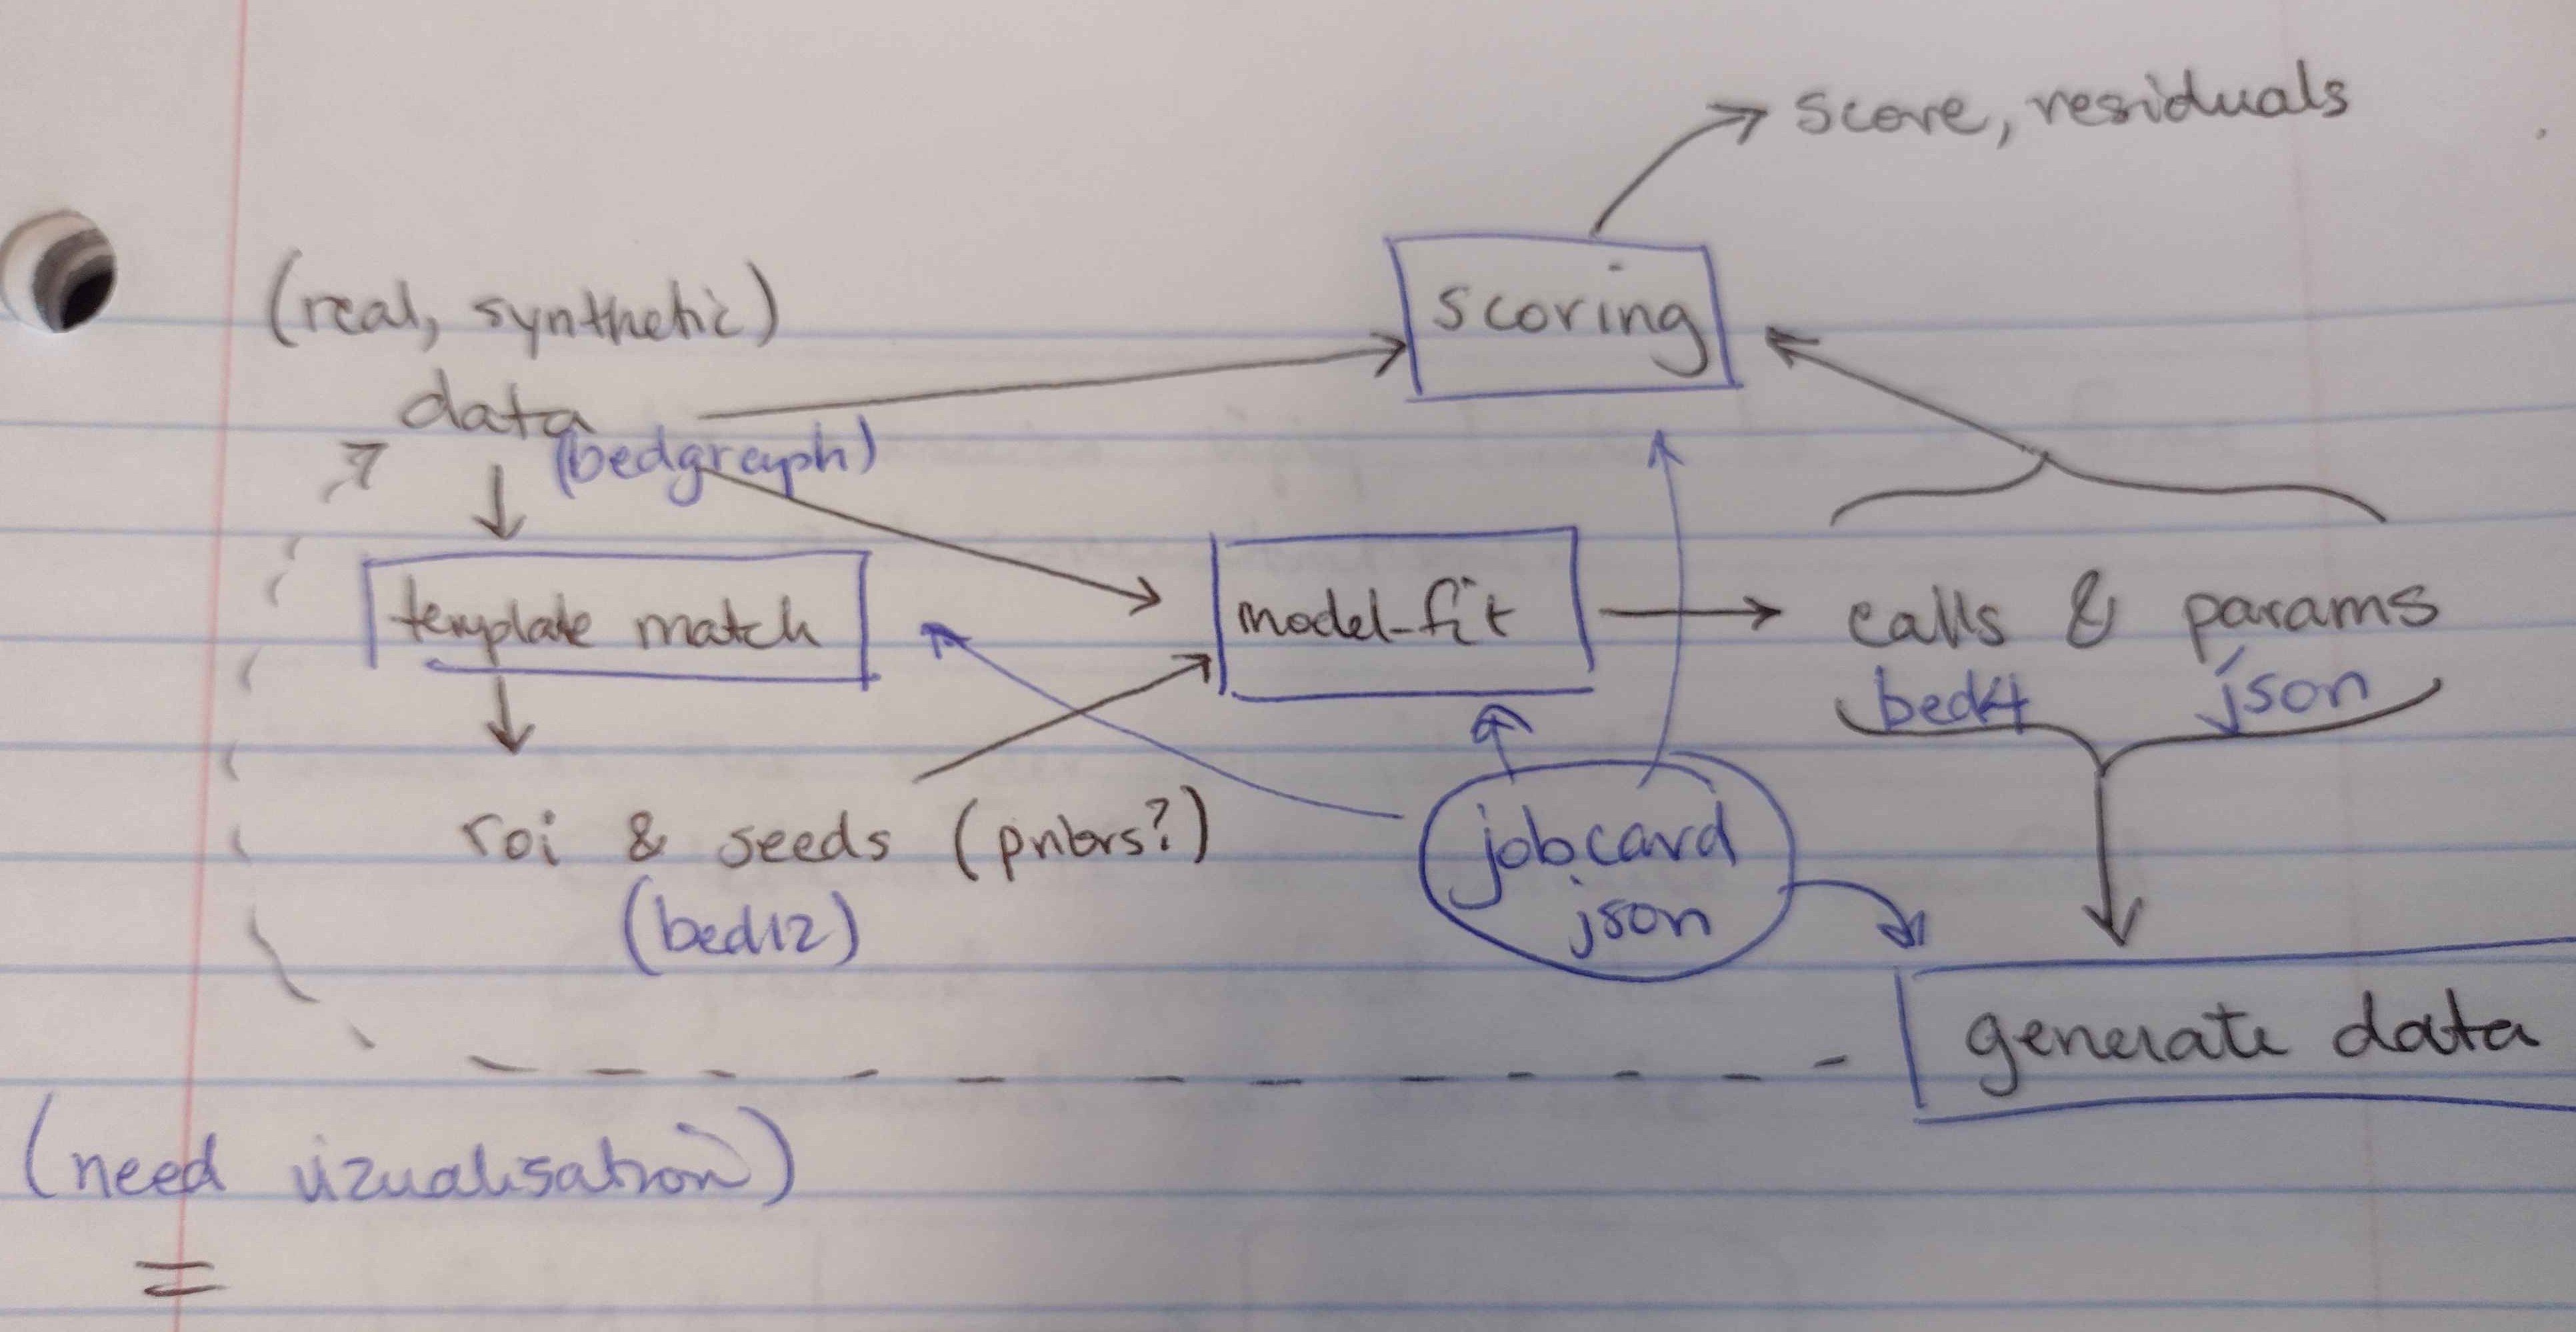 score, residuals
(real, synthetic)
scoring
data
(bedgraph)
template match
model-fit
calls & params
bed4 json
roi & seeds (priors?)
(bed12)
jobcard
json
generate data
(need vizualisation)
=